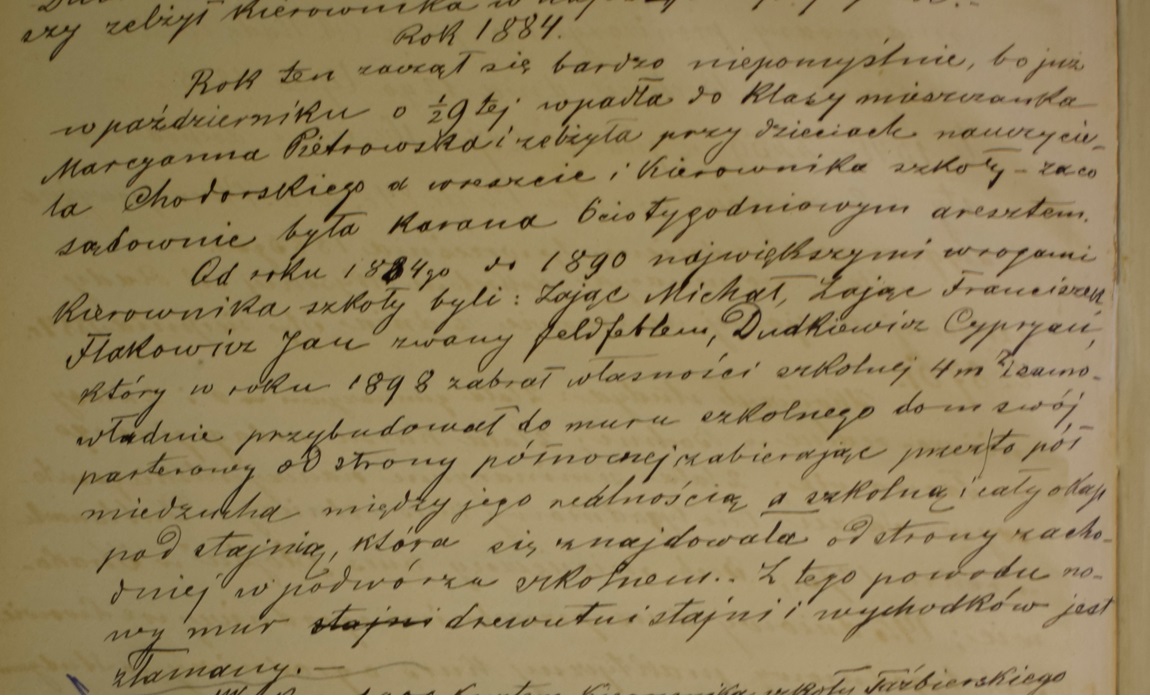 szy zelżył Kierownika w
Rok 1884.
Rok ten zaczął się bardzo niepomyślnie, bo już
w październiku o ½9tej wpadła do klasy mieszczanka
Marcyanna Pietrowska i zelżyła przy dzieciach nauczycie-
la Chodorskiego a wreszcie i Kierownika szkoły – za co
sądownie była karana 6cio tygodniowym aresztem.
Od roku 1884go do 1890 największymi wrogami
Kierownika szkoły byli: Zając Michał, Zając Franciszek
Flakowicz Jan zwany feldfeblem, Dudkiewicz Cypryan,
który w roku 1898 zabrał własności szkolnej 4m² i samo-
władnie przybudował do muru szkolnego dom swój
parterowy od strony północnej zabierając przez to pół
miedzucha między jego realnością a szkolną i cały okap
pod stajnią, która się znajdowała od strony zacho-
dniej w podwórzu szkolnem.. Z tego powodu no-
wy mur stajni drewutni stajni i wychodków jest
złamany. —
Kierownika szkoły Tarbierskiego